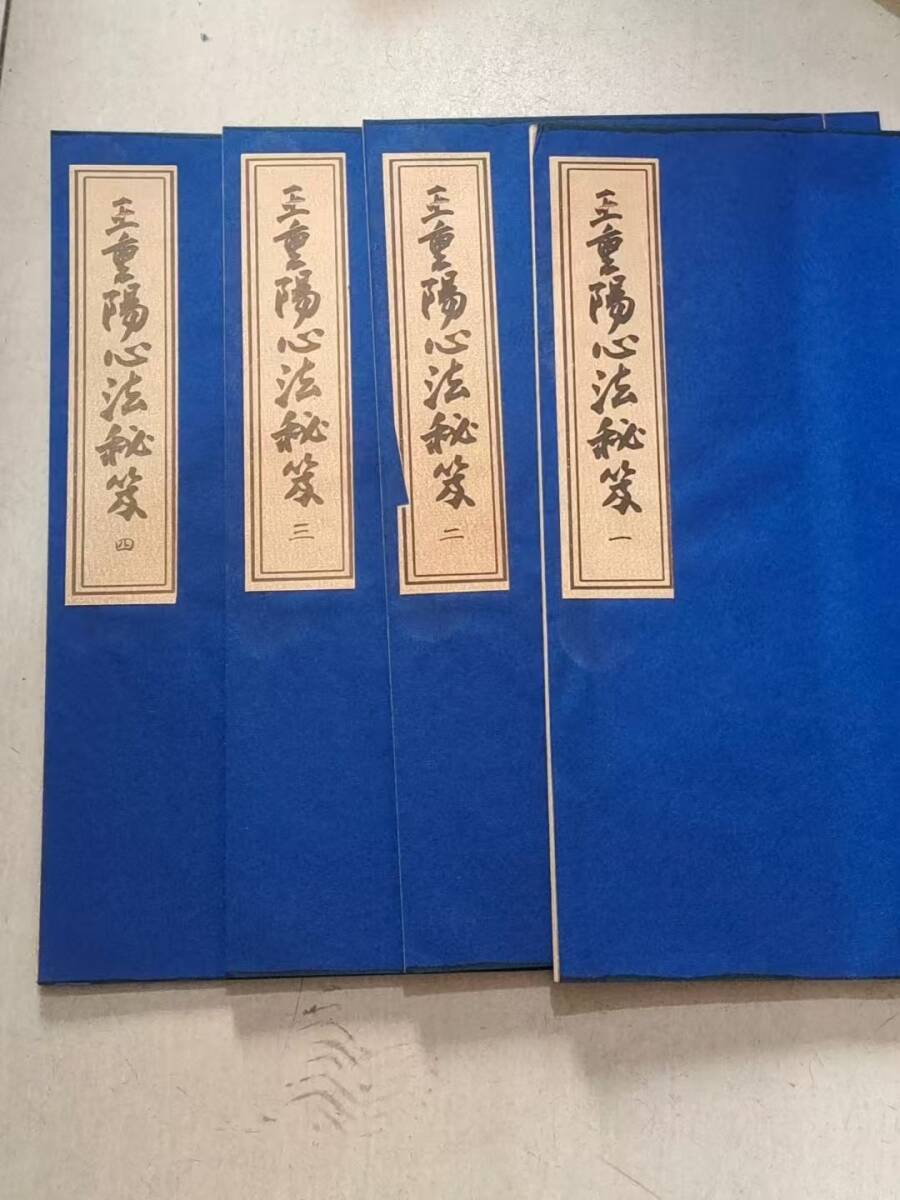 王重陽心法秘笈 一
王重陽心法秘笈 二
王重陽心法秘笈 三
王重陽心法秘笈 四